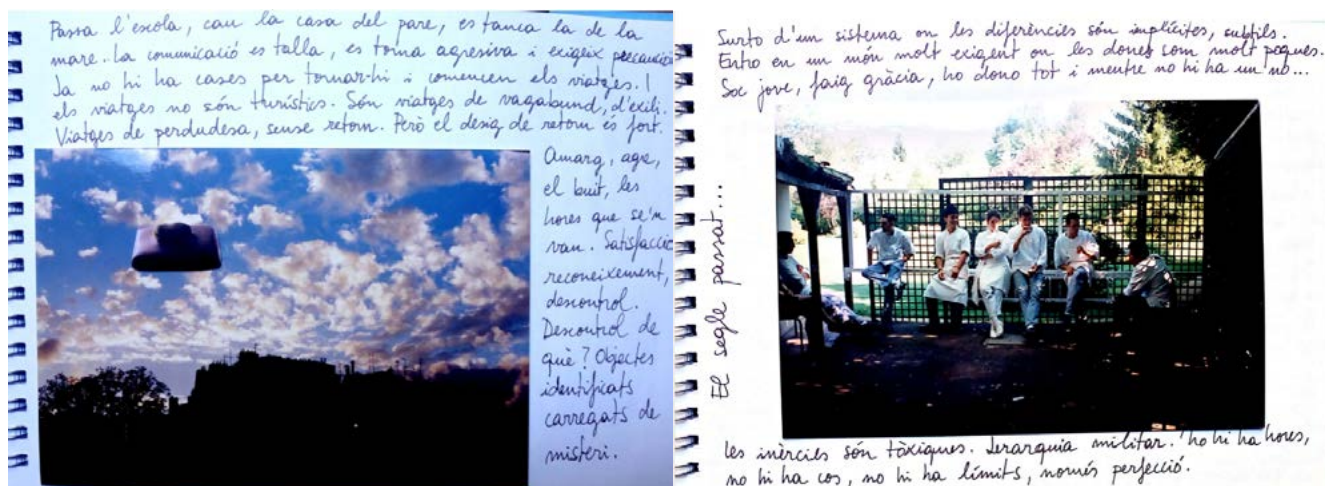 Passa l'escola, cau la casa del pare, es tanca la de la
mare.. La comunicació es talla, es torna agresiva i exigeix precaució
Ja no hi ha cases per tornar-hi i comencen els viatges. I
els viatges no són turístics. Són viatges de vagabund, d'exili.
Viatges de perdudesa, sense retorn. Però el desig de retorn és fort.
Amarg, agre,
el buit, les
hores que se'n
van. Satisfacció
reconeixement,
descontrol.
Descontrol de
què? Objectes
identificats
carregats de
misteri.
Surto d'un sistema on les diferències són implícites, subtils.
Entro en un món molt exigent on les dones som molt poques.
Soc jove, faig gràcia, ho dono tot i mentre no hi ha un no...
El segle passat...
Les inèrcies són tòxiques. Jerarquia militar. No hi ha hores,
no hi ha cos, no hi ha límits, només perfecció.